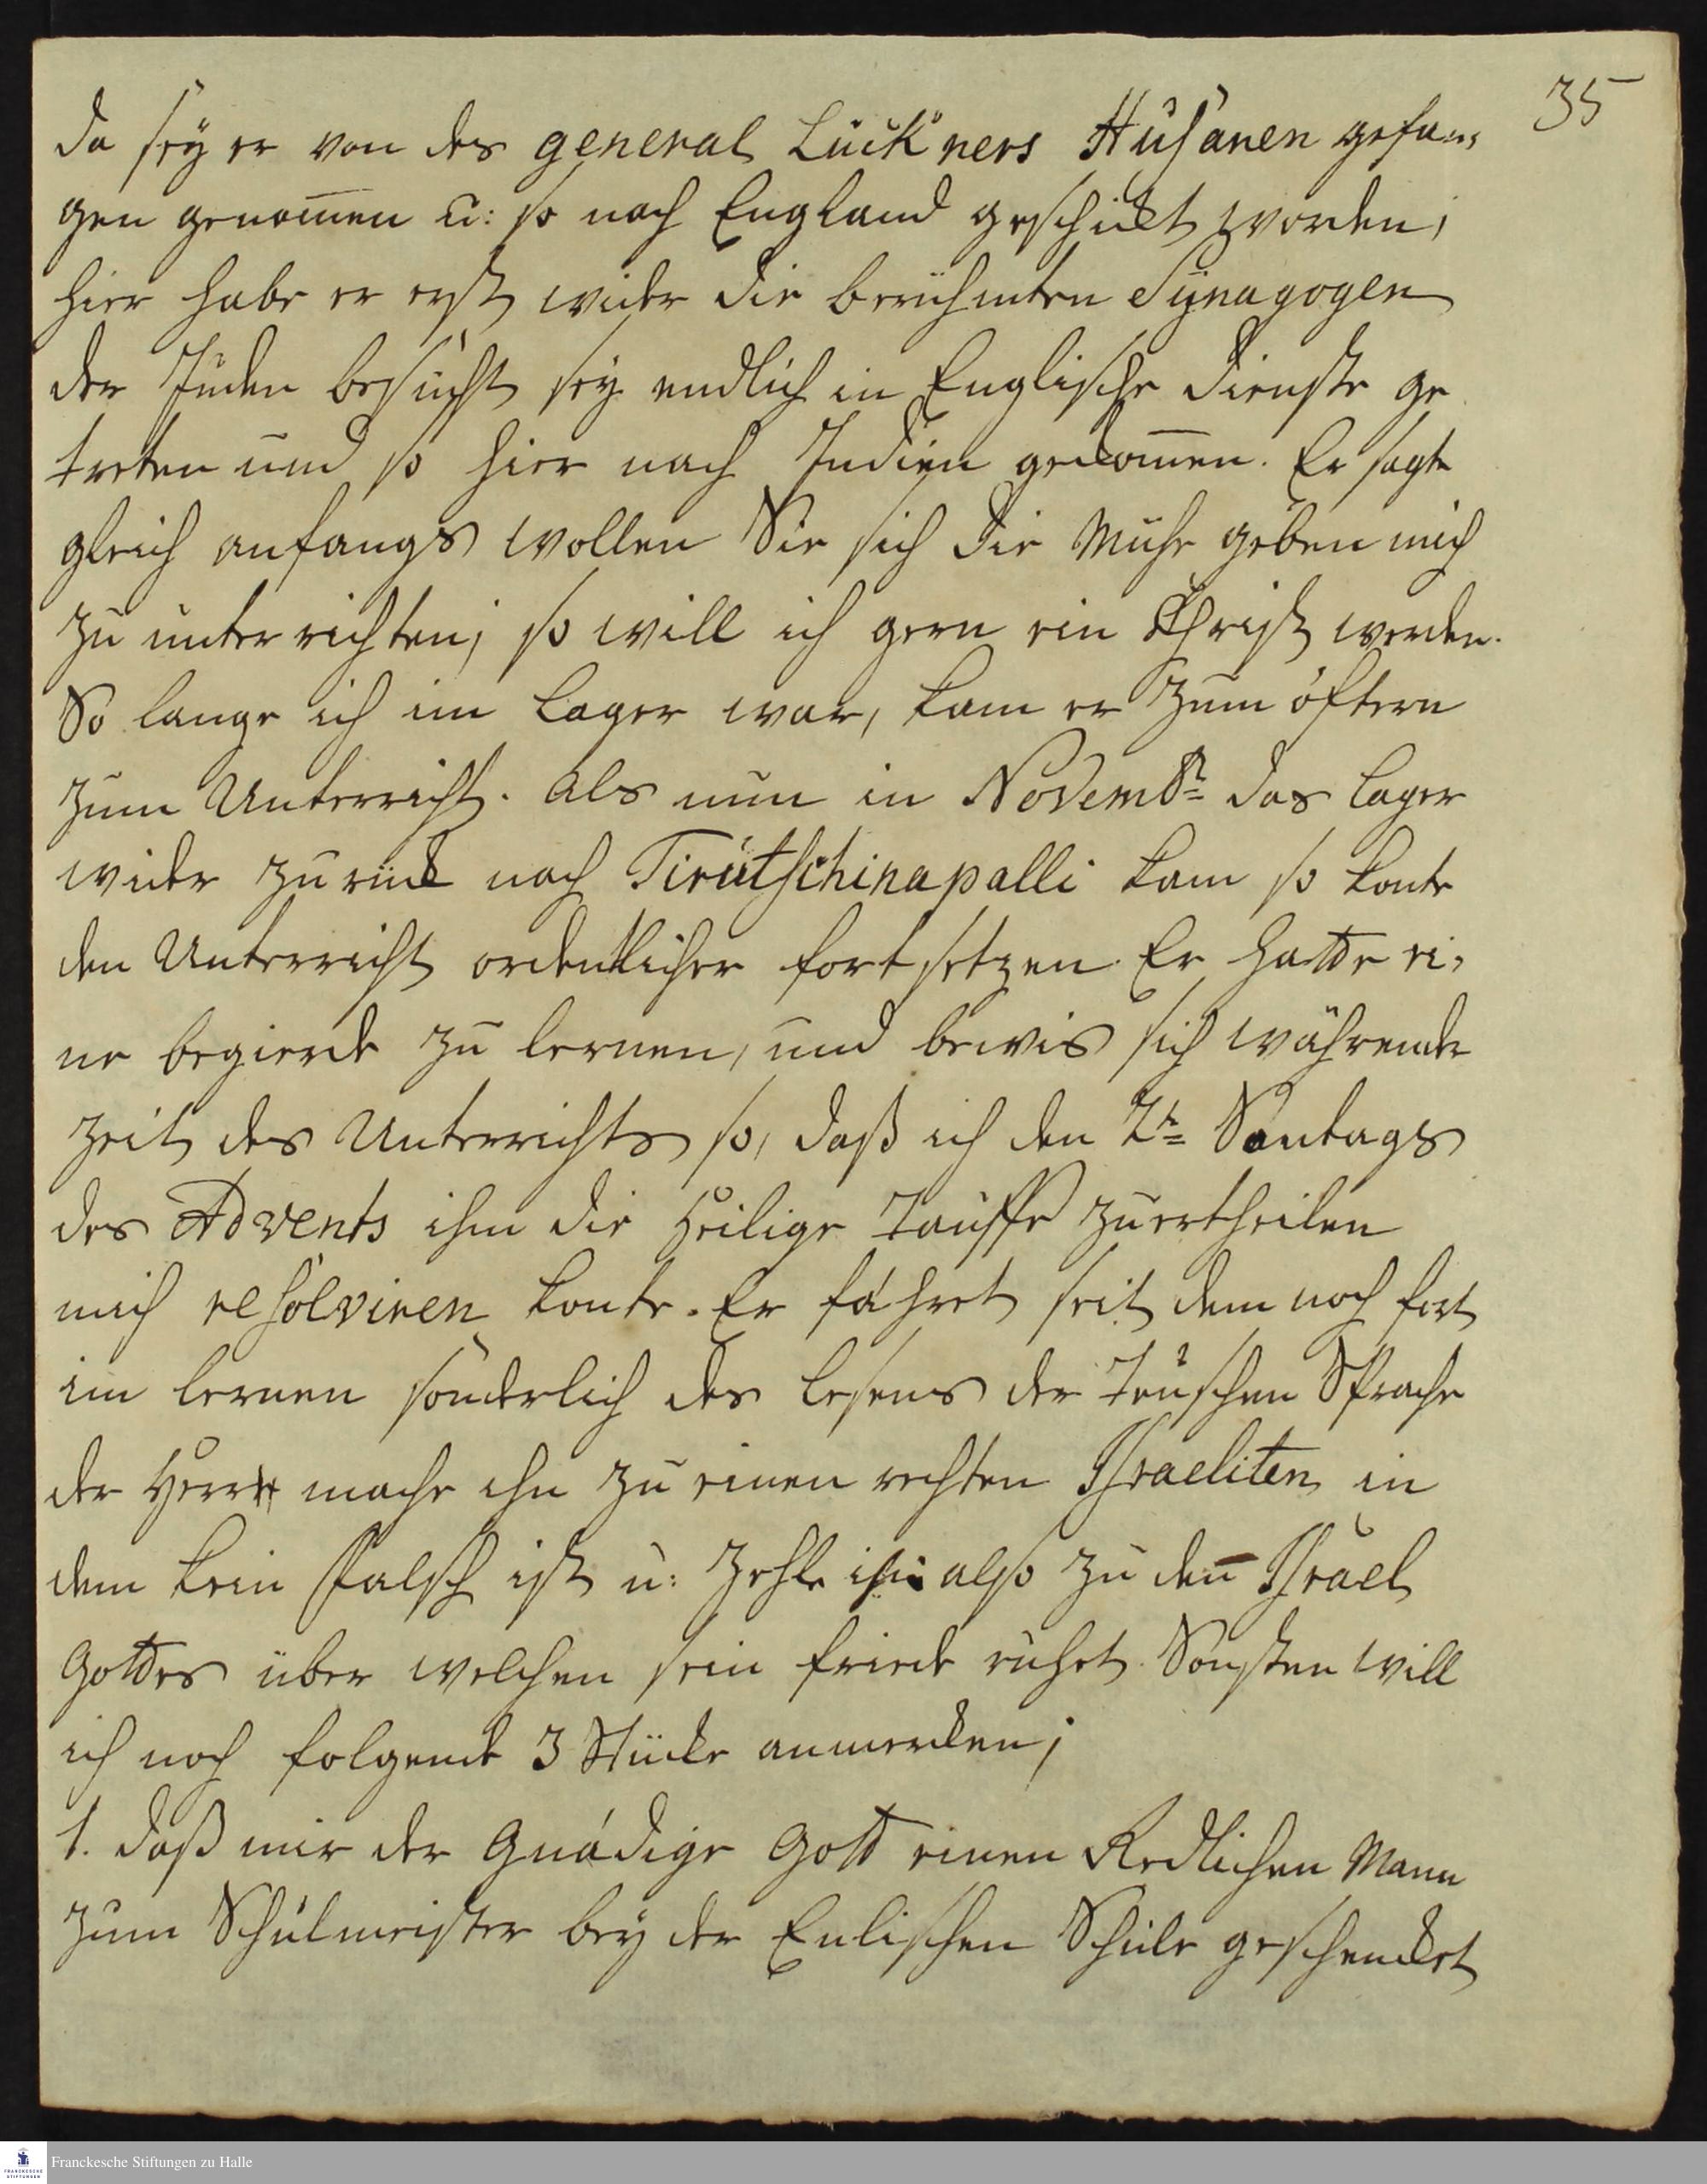 35
da sey er von des general Luckners Husaren gefan-
gen genom̄en u: so nach England geschickt worden;
hier habe er erst wider die berühmten Synagogen
der Juden besucht sey endlich in Englische Dienste ge
treten und so hier nach Indien gekom̄en. Er sagte
gleich anfangs wollen Sie sich die Mühe geben mich
zu unterrichten; so will ich gern ein Christ werden.
So lange ich im Lager war, kam er zum öftern
zum Unterricht. Als nun in Novembr das Lager
wider zurück nach Tirutschinapalli kam so konte
den Unterricht ordentlicher fortsetzen. Er hatte ei-
ne begierde zu lernen, und bewis sich währender
Zeit des Unterrichts so, daß ich den 2te Sontags
des Advents ihm die Heilige Tauffe zuertheilen
mich resolviren konte. Er fähret seit dem noch fort
im lernen sonderlich des lesens der Teuschen Sprache
der Herr mache ihn zu einen rechten Israeliten in
dem kein Falsch ist u: zehle ihn also zu den Israel
Gottes über welchen sein friede ruhet. Sonsten will
ich noch folgende 3 Stücke anmercken;
1. daß mir der Gnädige Gott einen Redlichen Mann
zum Schulmeister bey der Enlischen Schule geschencket
Franckesche Stiftungen zu Halle
FRANCKESCHE STIFTUNGEN